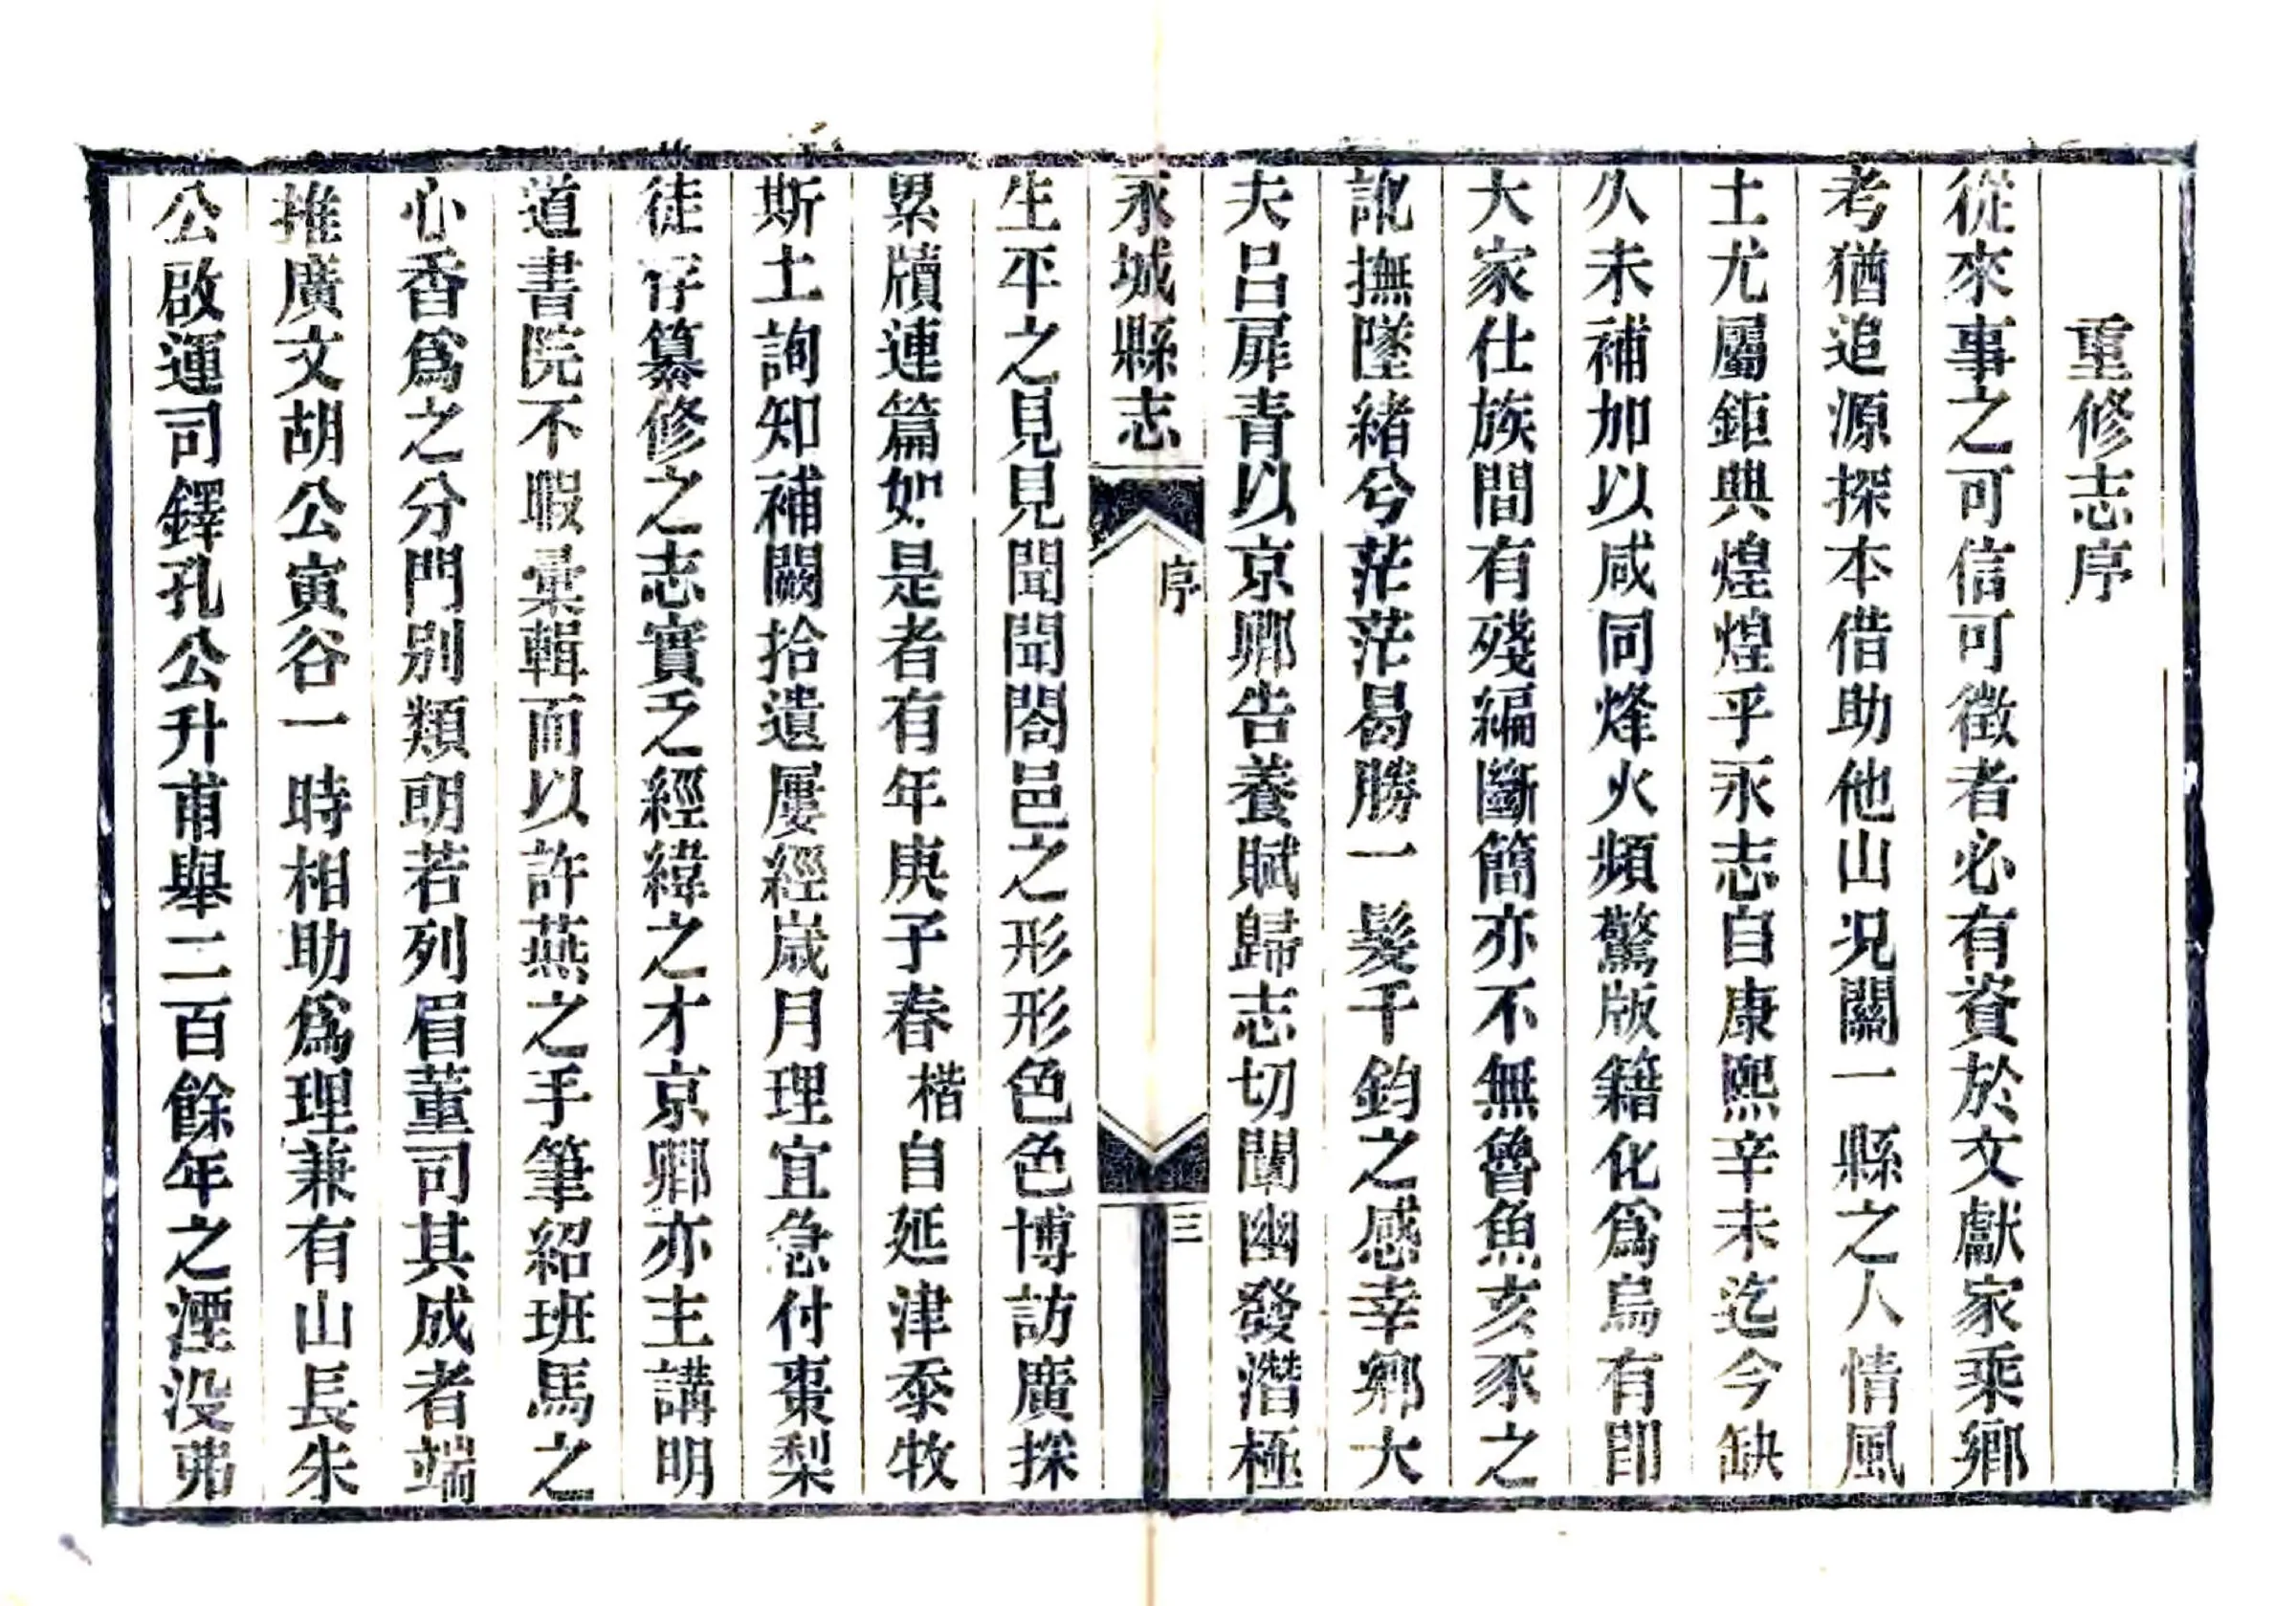 重修志序
從來事之可信可徵者必有資於文獻家乘鄉
考猶追源探本借助他山况關一縣之人情風
土尤屬鉅典煌煌乎永志自康熙辛未迄今缺
久未補加以咸同烽火頻驚版籍化爲烏有卽
大家仕族間有殘編斷簡亦不無魯魚亥豕之
訛撫墜緒兮茫茫曷勝一髮千鈞之感幸鄉大
夫呂屛青以京卿告養賦歸志切闡幽發潛極
永城縣志
序
三
生平之見見聞聞閤邑之形形色色博訪廣採
累牘連篇如是者有年庚子春楷自延津忝牧
斯土詢知補闕拾遺屢經嵗月理宜急付棗梨
徒存纂修之志實乏經緯之才京卿亦主講明
道書院不暇彙輯而以許燕之手筆紹班馬之
心香爲之分門别類朗若列眉董司其成者端
推廣文胡公寅谷一時相助爲理兼有山長朱
公啟運司鐸孔公升甫舉二百餘年之湮没弗